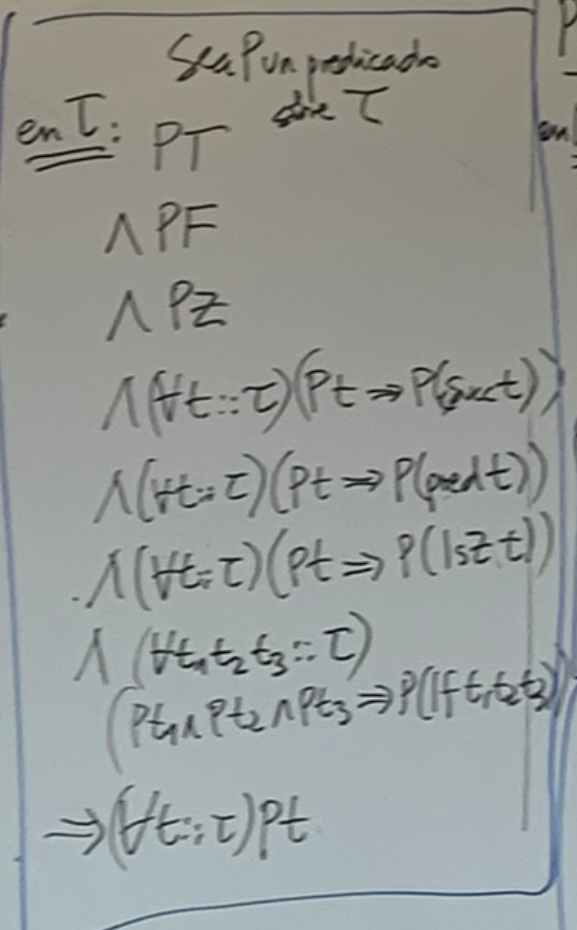 Sea P un predicado
sobre τ
en τ: PT
∧ PF
∧ PZ
∧(∀t::τ)(Pt ⇒ P(succ t))
∧(∀t::τ)(Pt ⇒ P(pred t))
∧(∀t::τ)(Pt ⇒ P(IsZ t))
∧ (∀t₁t₂t₃::τ)
(Pt₁∧Pt₂∧Pt₃⇒P(If t₁t₂t₃))
⇒(∀t::τ)Pt